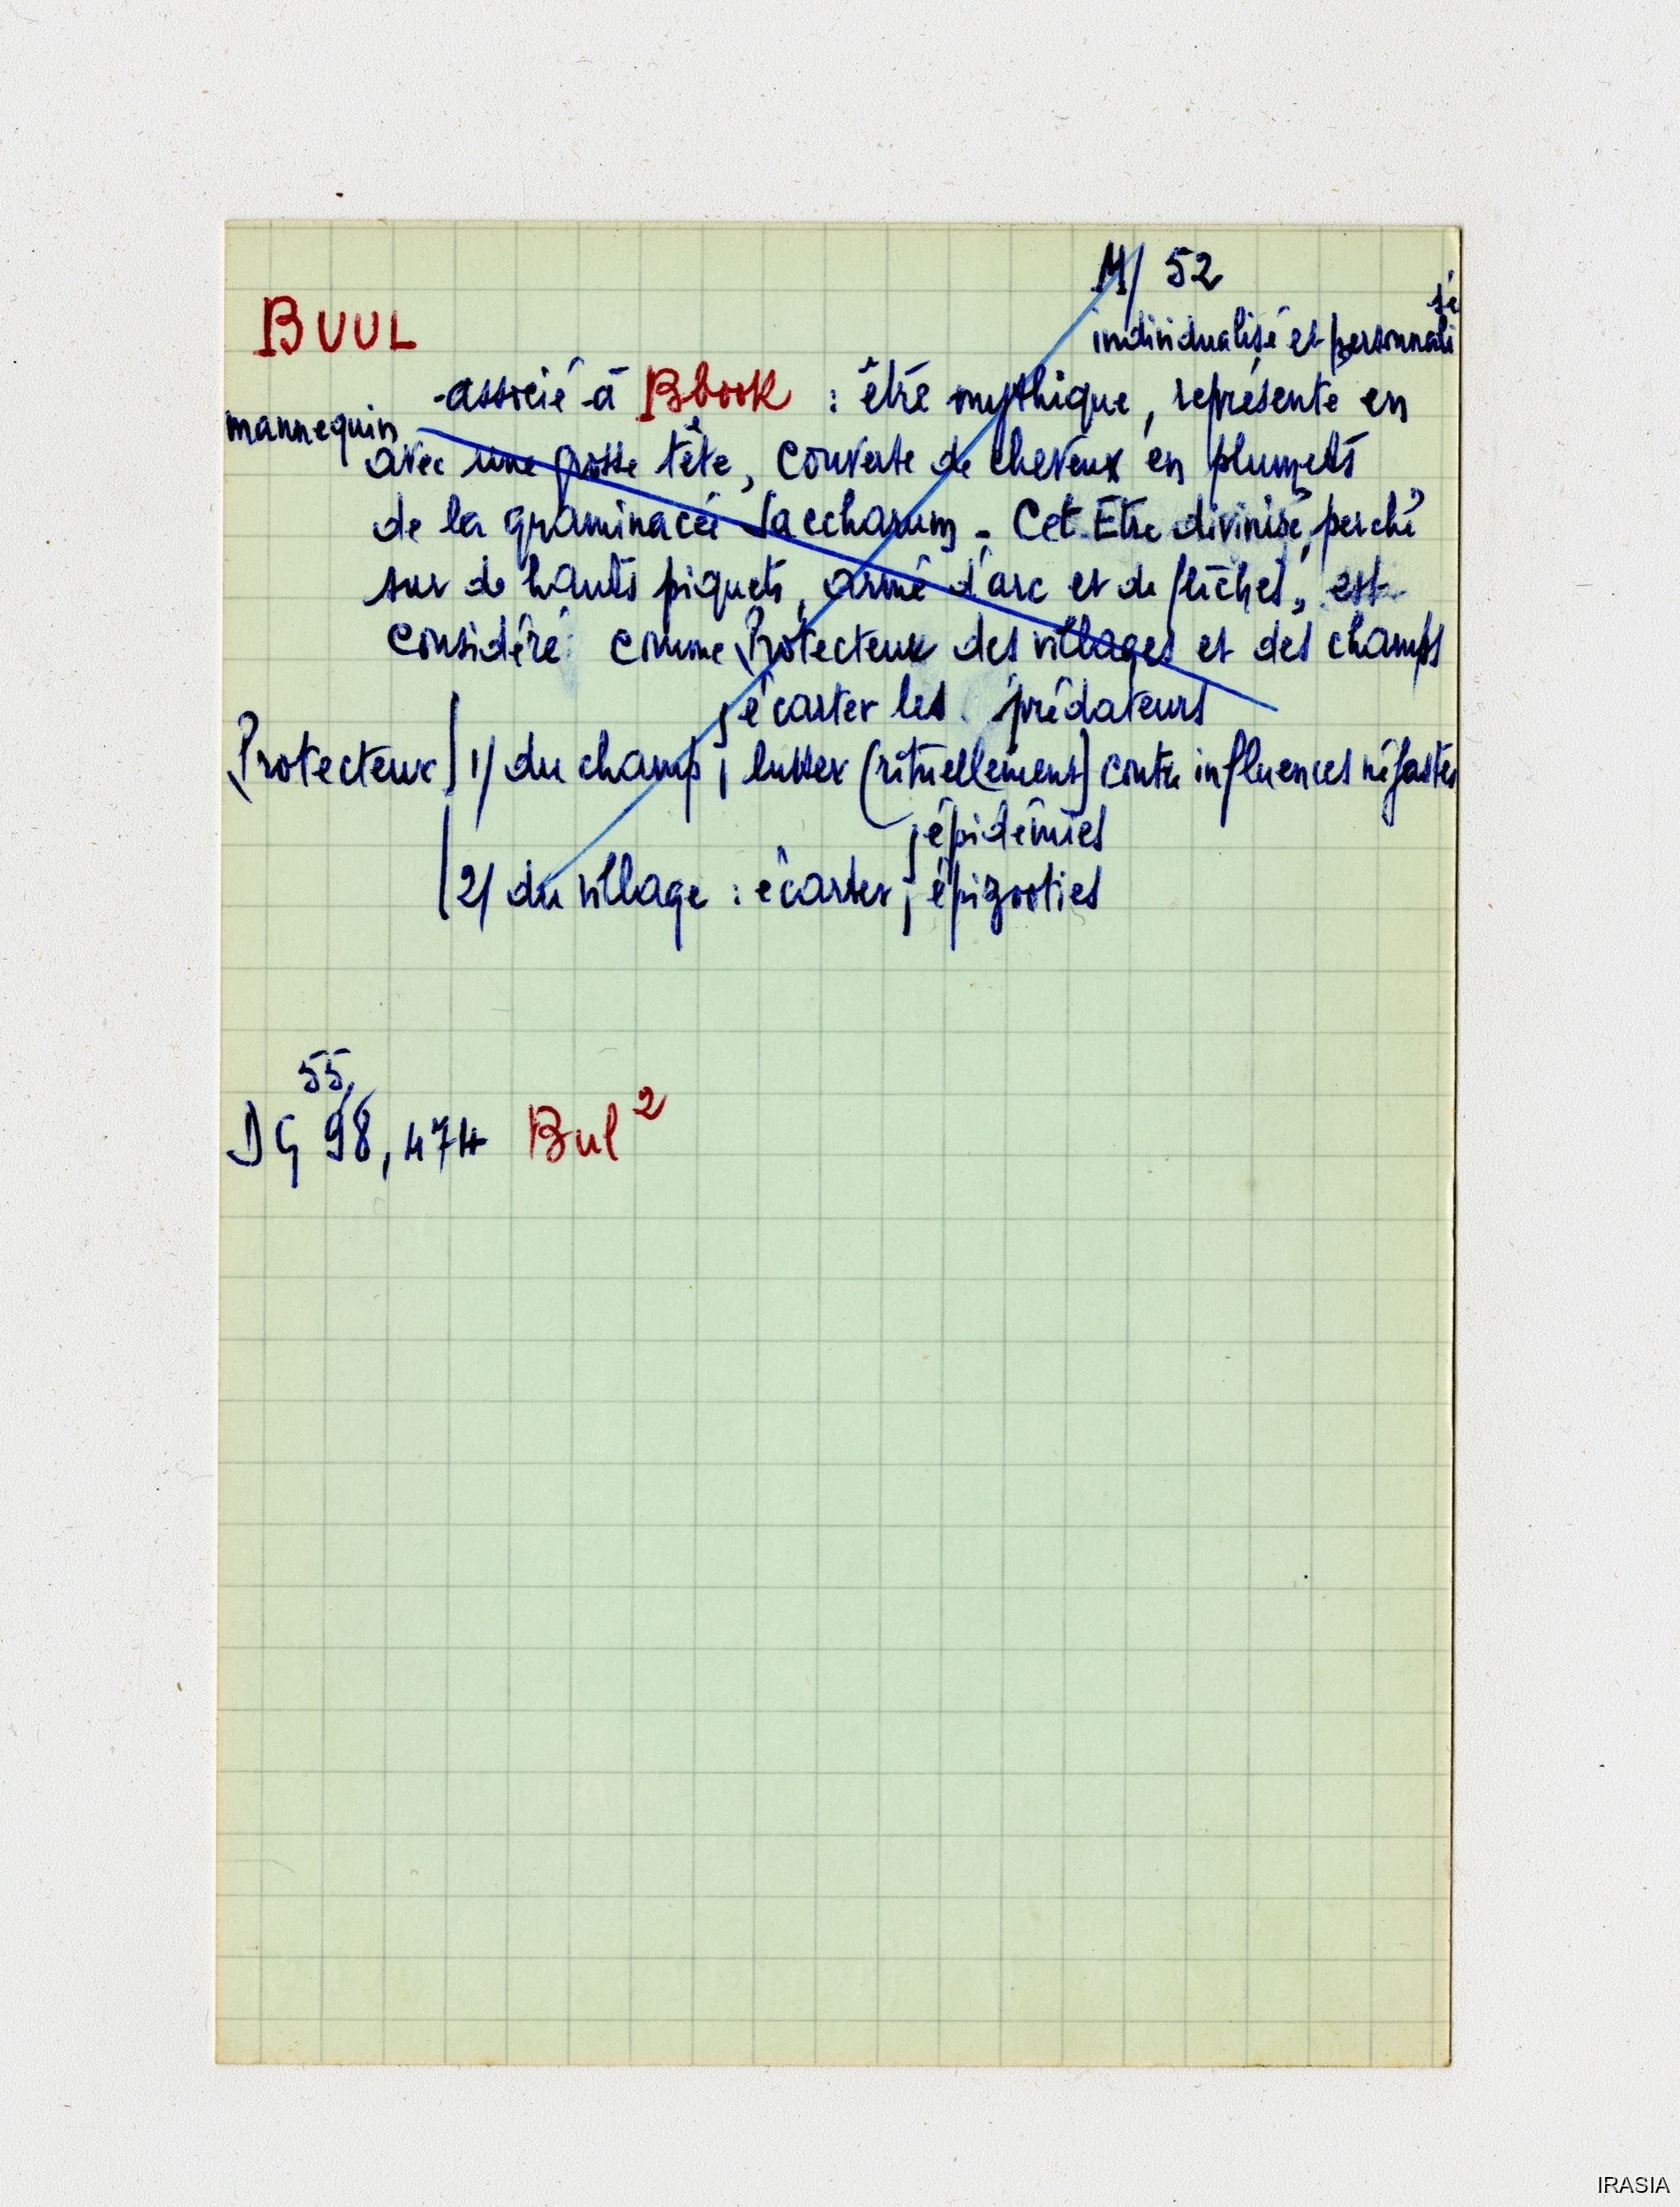 M/ 52
BUUL
individualisé et personnalisé
associé à Bbook : être mythique, représenté en
mannequin
avec une grosse tête, couverte de cheveux en plumets
de la graminacée Saccharum - Cet Etre divinisé, perché
sur de hauts piquets, armé d'arc et de flèches, est
considéré comme Protecteur des villages et des champs
écarter les prédateurs
Protecteur 1/ du champ lutter (rituellement) contre influences néfastes
épidémies
2/ du village : écarter épizooties
55,
DG 98, 474 Bul²
IRASIA